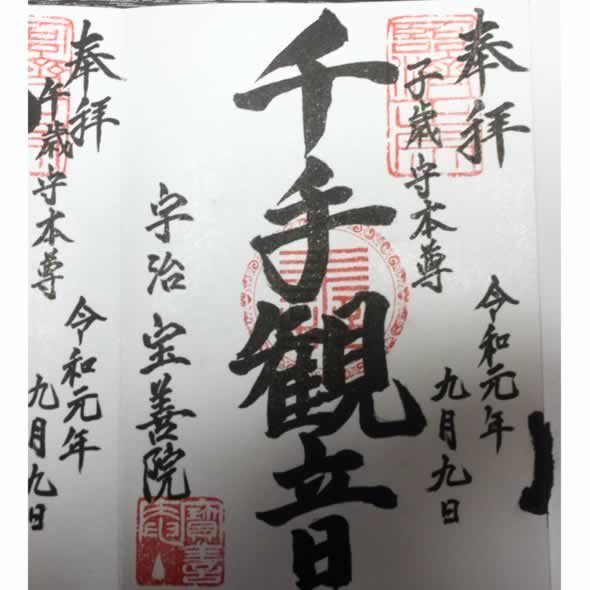 奉拝
子歳守本尊
令和元年
九月九日
千手観音
宇治 宝善院
奉拝
午歳守本尊
令和元年
九月九日